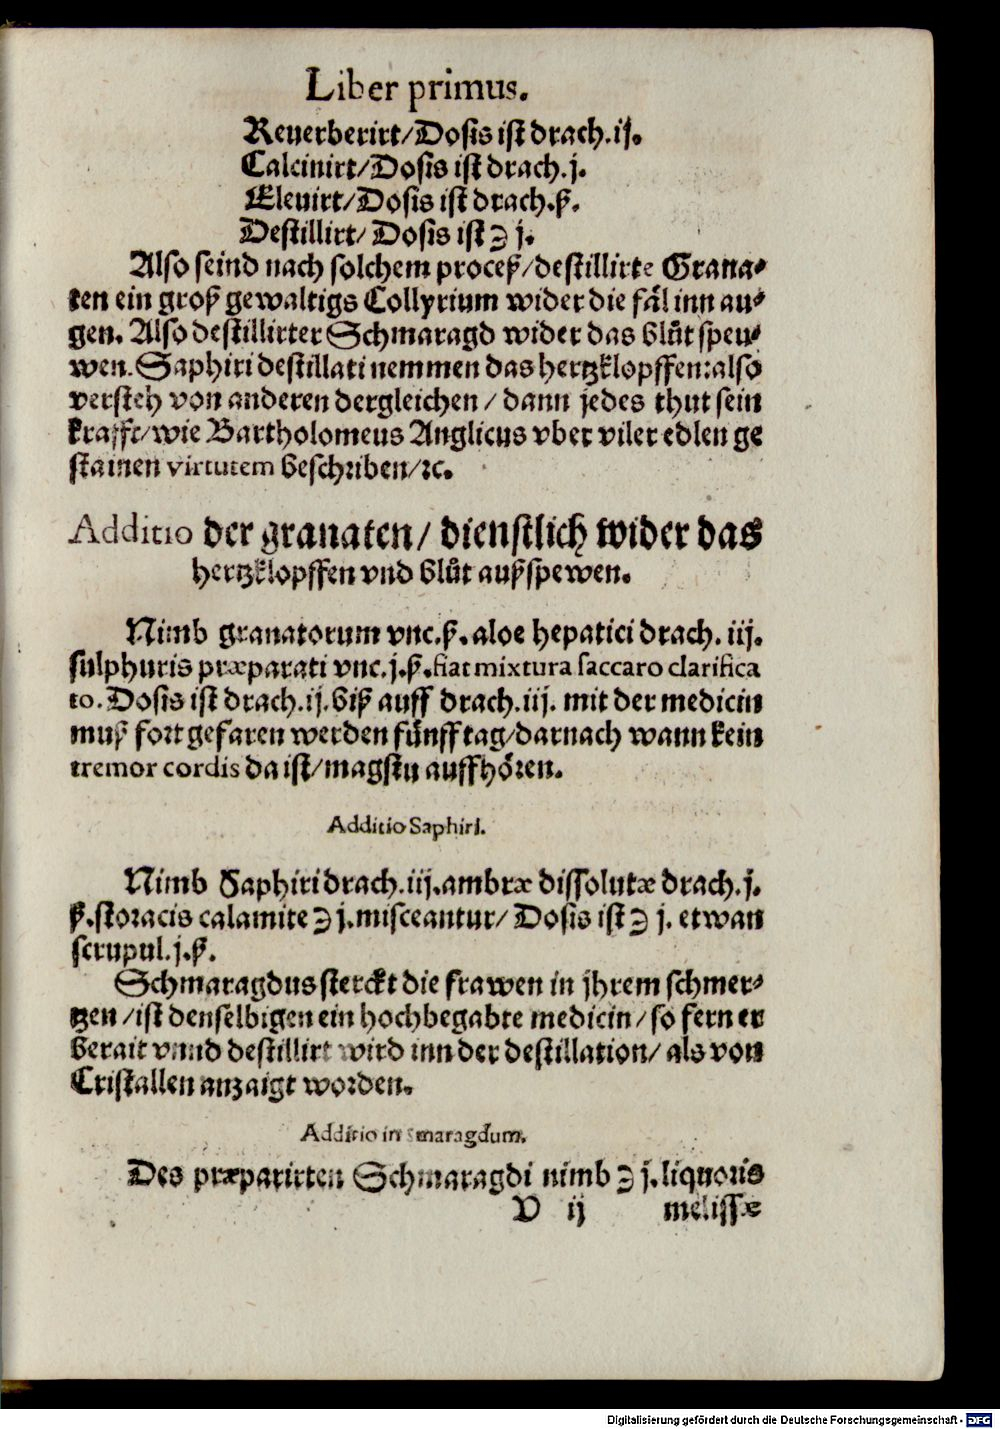 Liber primus.
Reuerberirt/Dosis ist drach.ij.
Calcinirt/Dosis ist drach.j.
Eleuirt/Dosis ist drach.ß.
Destillirt/Dosis ist ℈ j.
Also seind nach solchem proceß/destillirte Grana⸗
ten ein groß gewaltigs Collyrium wider die fäl inn au⸗
gen. Also destillirter Schmaragd wider das blůt speu⸗
wen. Saphiri destillati nemmen das hertzklopffen:also
versteh von anderen dergleichen / dann jedes thut sein
krafft/wie Bartholomeus Anglicus vber viler edlen ge
stainen virtutem beschriben/ꝛc.
Additio der granaten/ dienstlich wider das
hertzklopffen vnd blůt außspewen.
Nimb granatorum vnc.ß. aloe hepatici drach. iij.
sulphuris præparati vnc.j.ß. fiat mixtura saccaro clarifica
to. Dosis ist drach.ij. biß auff drach.iij. mit der medicin
muß fort gefaren werden fünff tag/darnach wann kein
tremor cordis da ist/magstu auffhören.
Additio Saphiri.
Nimb Saphiri drach.iij. ambræ dissolutæ drach.j.
ß. storacis calamite ℈ j. misceantur/ Dosis ist ℈ j. etwan
scrupul.j.ß.
Schmaragdus sterckt die frawen in jhrem schmer⸗
tzen /ist denselbigen ein hochbegabte medicin/ so fern er
berait vnnd destillirt wird inn der destillation/ als von
Cristallen anzaigt worden.
Additio in smaragdum.
Des præparirten Schmaragdi nimb ℈ j. liquoris
V ij melissæ
Digitalisierung gefördert durch die Deutsche Forschungsgemeinschaft - DFG